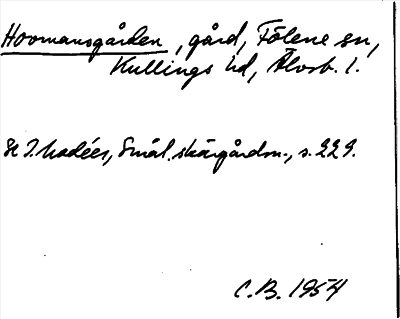 Hoomansgården, gård, Fölene sn,
Kullings hd, Älvsb. l.
Se I. Modéer, Smål. skärgårdsn., s. 229.
C.B. 1954